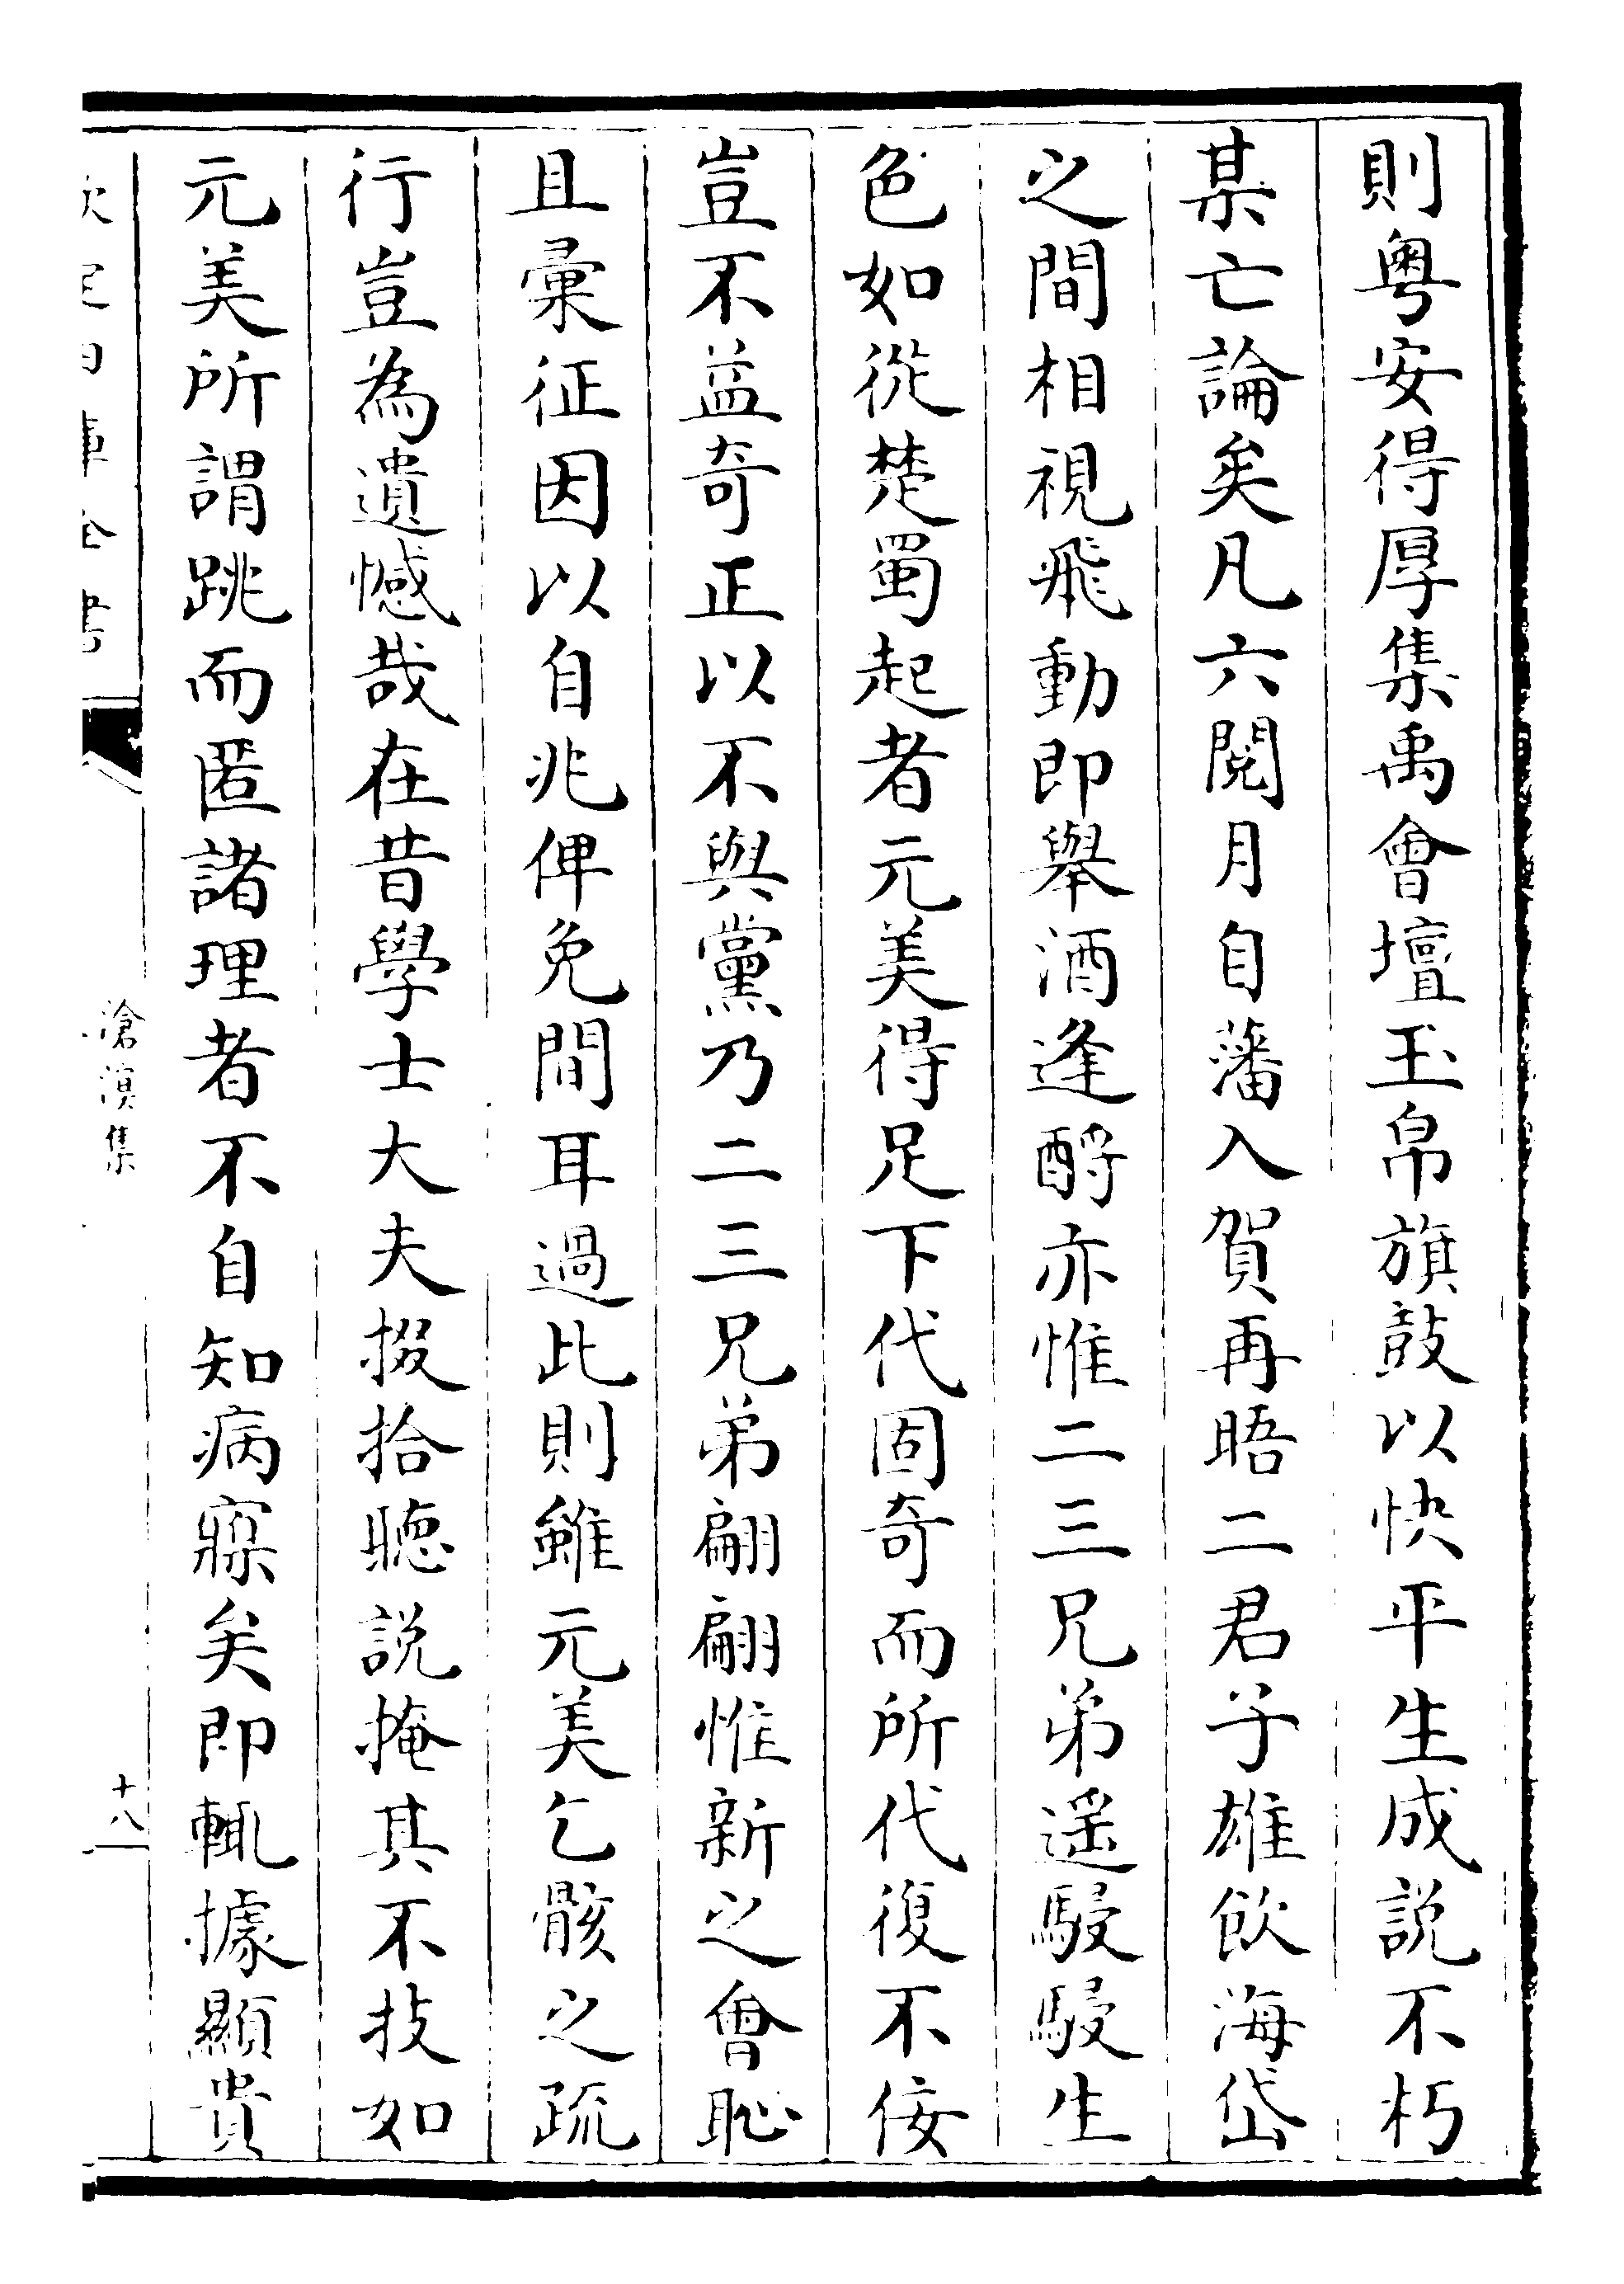 則粤安得厚集禹會壇玉帛旗鼓以快平生成説不朽
某亡論矣凡六閱月自藩入賀再晤二君子雄飲海岱
之間相視飛動即舉酒逢酹亦惟二三兄弟遥駸駸生
色如從楚蜀起者元美得足下代固奇而所代復不侫
豈不益奇正以不與黨乃二三兄弟翩翩惟新之會恥
且彚征因以自兆俾免間耳過此則雖元美乞骸之疏
行豈為遺憾哉在昔學士大夫掇拾聴説掩其不技如
元美所謂跳而匿諸理者不自知病寐矣即輒據顯貴
欽定四庫全書
滄溟集
十八